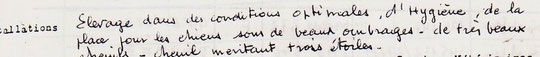 allations Elevage dans des conditions optimales, d'Hygiène, de la
place pour les chiens sous de beaux ombrages. de très beaux
chenils - chenil méritant trois étoiles.